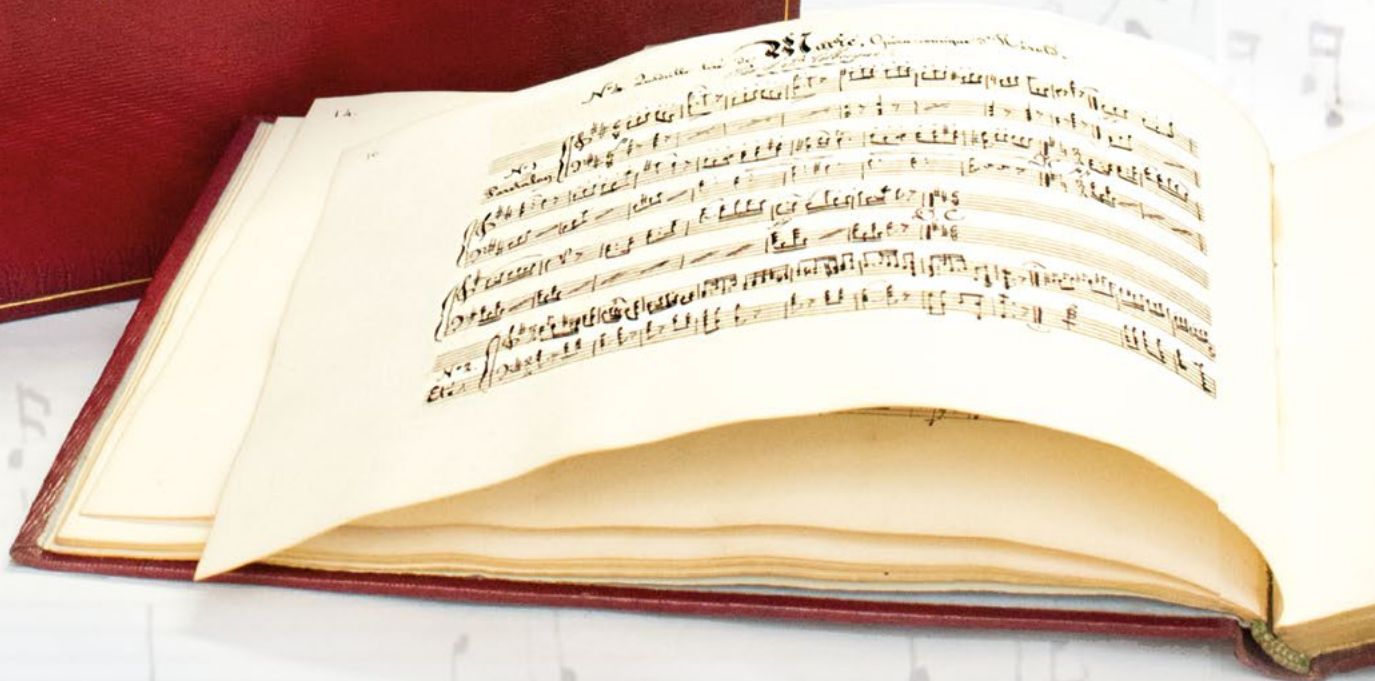 14.
Marie, Opéra-comique d'Hérold.
N° 4. Quadrille tiré de
N° 1.
Pantalon
D.C.
N° 2.
Eté